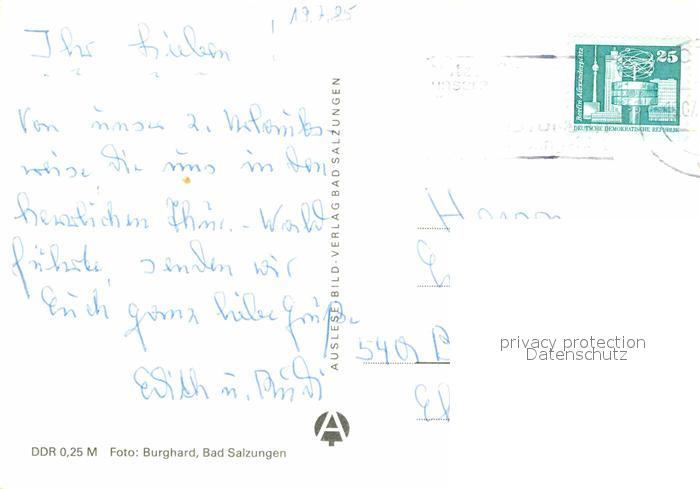 19.7.85
Ihr Lieben!
Von unser 2. Urlaubs-
reise die uns in den
herrlichen Thür.-Wald
führte, senden wir
Euch ganz liebe Grüße
Edith u. Rudi
AUSLESE-BILD-VERLAG BAD SALZUNGEN
25
Berlin, Alexanderplatz
DEUTSCHE DEMOKRATISCHE REPUBLIK
5401
privacy protection
Datenschutz
DDR 0,25 M Foto: Burghard, Bad Salzungen